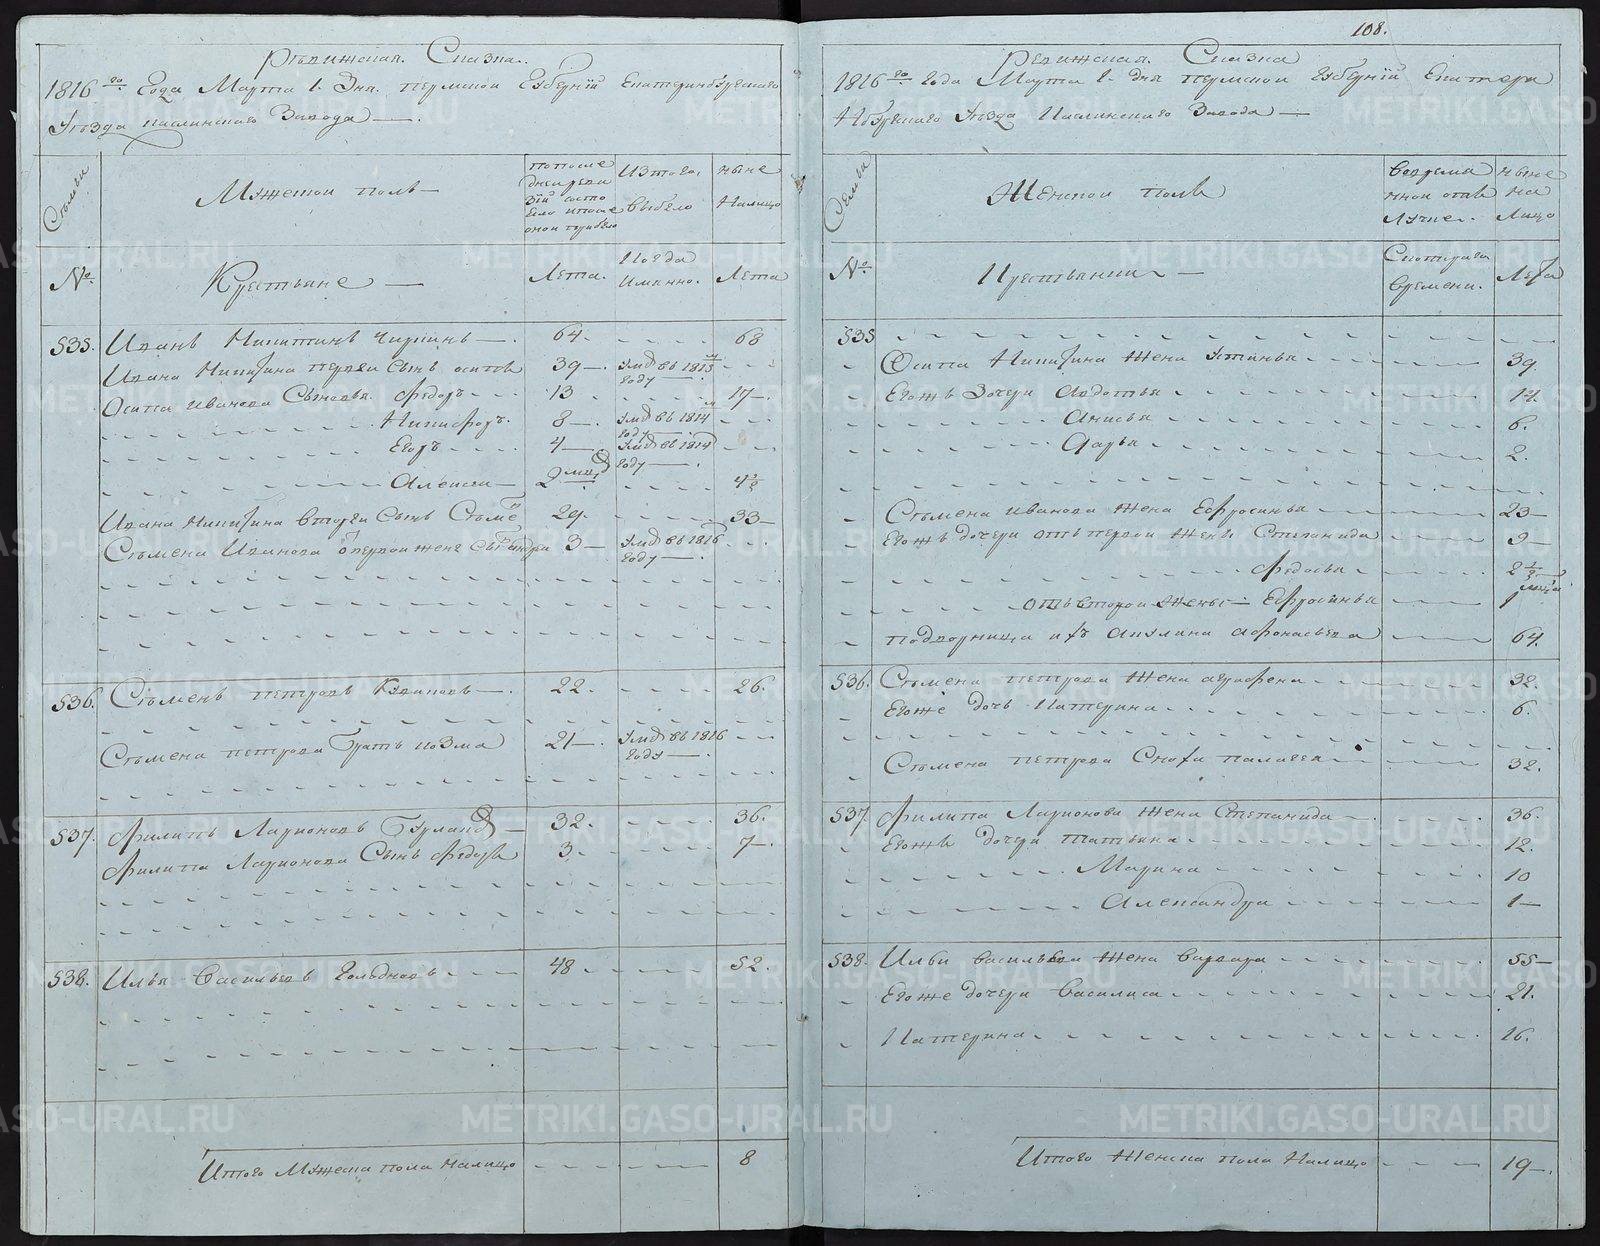 Ревижская Сказка.
1816го Года Марта 1. Дня. пермской Губернïи Екатеринбургскаго
Уезда каслинскаго Завода —
Семьи
Мужеской полъ —
попосле
дней реви
зïи состо
яло и после
оной прибыло
Изтого,
выбыло
ныне
Налицо
№
Крестьяне —
Лета.
Когда
Имянно.
Лета
535. Иванъ Никитинъ — 64. 68
Ивана Никитина первой Сынъ осипъ 39 — Умрѣ въ 1813м году —
Осипа Иванова Сыновья. Федоръ 13 17 —
Никифоръ. 8 — Умрѣ въ 1814м году —
Егоръ 4 — Умрѣ въ 1814 году —
Алексеи — 2 мцд 4 1/2
Ивана Никитина второй Сынъ Семенъ 29. 33 —
Семена Иванова 3 — Умрѣ въ 1816 году —
536. Семенъ петровъ — 22. 26.
Семена петрова братъ козма 21 — Умрѣ въ 1816 году —
537. Филипъ Ларионовъ Бурлакъ — 32. 36.
Филипа Ларионова Сынъ Федоръ 3. 7 —
538. Илья Васильевъ 48 52.
Итого Мужеска пола налицо 8
108.
Ревижская. Сказка
1816го года Марта 1. дня пермской губернïи Екатери
нбургскаго Уезда Каслинскаго Завода —
Семьи
Женской полъ
вовремя
нной отлу
лучке.
ныне
на
Лицо
№
Крестьянки —
Скотораго
времени.
Лета
535
Осипа Никитина жена Устинья 39.
Егожъ Дочери Авдотья 17.
Анисья 6.
Дарья 2.
Семена иванова жена Ефросинья 23 —
Егожъ дочери отъ первой жены Степанида 9 —
Федосья 2 1/2
отъ второй жены — Ефросинья 1 месяц
подворница ихъ Акулина Афонасьева 64.
536. Семена петрова жена аграфена 32.
Егоже дочь Катерина 6.
Семена петрова Сноха палагея 32.
537. Филипа Ларионова жена Степанида 36.
Егожъ дочери татьяна 12.
Марина 10
Александра 1 —
538. Ильи васильева жена варвара 55 —
Егоже дочери василиса 21.
Катерина 16.
Итого женска пола Налицо 19 —
METRIKI.GASO-URAL.RU